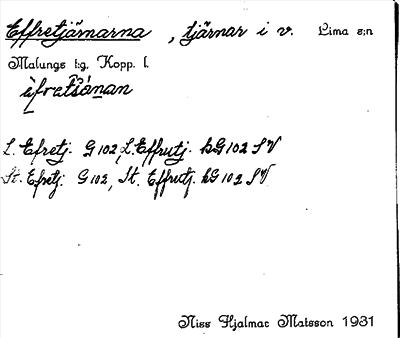 Effretjärnarna, tjärnar i v. Lima s:n
Malungs t:g, Kopp. l.
L. Efretj. G 102, L. Effrutj. kG 102 SV
St. Efretj. G 102, St. Effrutj. kG 102 SV
Niss Hjalmar Matsson 1931